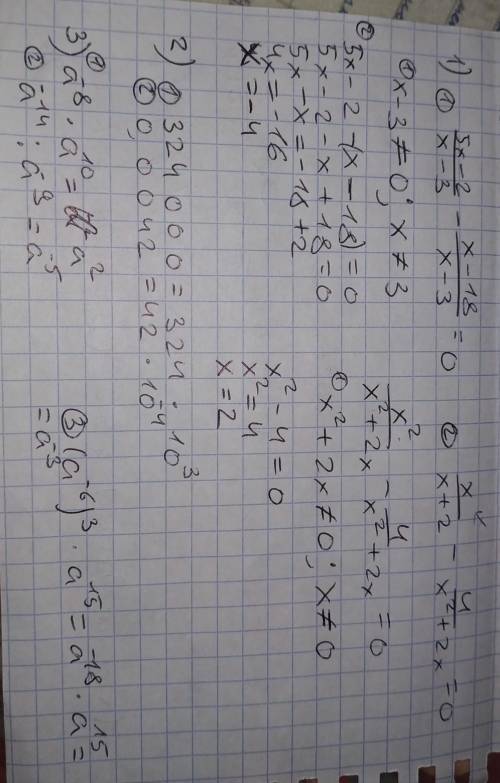 1) ① (5x-2)/(x-3) - (x-18)/(x-3) = 0
① x-3≠0; x≠3
② 5x-2-(x-18)=0
5x-2-x+18=0
5x-x=-18+2
4x=-16
x=-4
② x/(x+2) - 4/(x²+2x) = 0
x²/(x²+2x) - 4/(x²+2x) = 0
① x²+2x≠0; x≠0
x²-4=0
x²=4
x=2
2) ① 324000=324·10³
② 0,0042=42·10⁻⁴
3) ① a⁻⁸·a¹⁰=a²
② a⁻¹⁴:a⁻⁹=a⁻⁵
③ (a⁻⁶)³·a¹⁵=a⁻¹⁸·a¹⁵=
=a⁻³